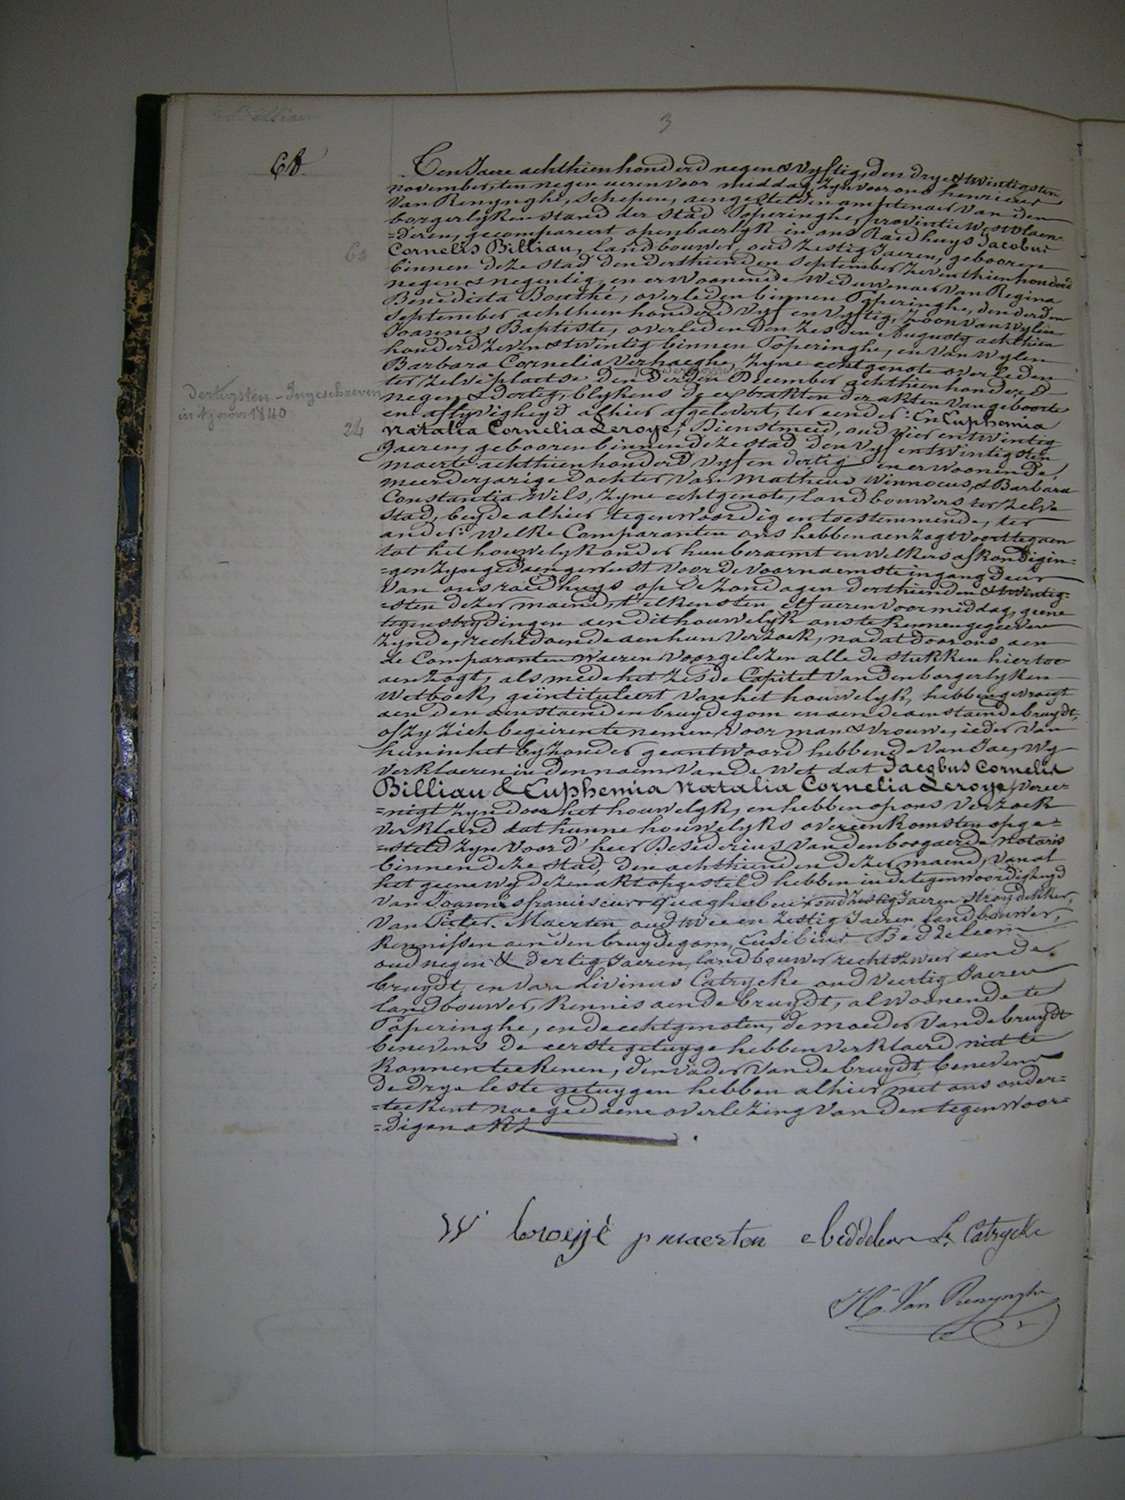 3
68
Ten Jaere achthienhonderd negen & vyftig, den drye & twintigsten
november, ten negen ueren voor middag, zyn voor ons henricus
Van Renynghe, Schepen, aengestelden amptenaer van den
borgerlyken stand der stad Poperinghe, provintie Westvlaen-
=deren, gecompareert openbaerlyk in ons Raedhuys Jacobus
60
Cornelis Billiau, landbouwer, oud zestig Jaeren, gebooren
binnen deze stad den derthienden September zeventhienhonderd
negen & negentig, en er woonende Weduwenaer van Regina
Benedicta Bouche, overleden binnen Poperinghe, den derden
September achthienhonderd vyf en vyftig, zoon van wylen
Joannes Baptiste, overleden den zesden Augusty achthien
honderd zeven & twintig binnen Poperinghe, en van wylen
Barbara Cornelia Verhaeghe, zyne echtgenote overleden
ter zelve plaetse den derden December achthienhonderd
Dertigsten - Ingeschreven
in 1 janr 1840
negen & dertig, blykens de extrakten der akten van geboorte
en aflyvigheyd alhier afgelevert, ter eender: En Euphemia
24
Natalia Cornelia Leroye, Dienstmeid, oud vier en twintig
Jaeren, gebooren binnen deze stad den vyf en twintigsten
maerte achthienhonderd vyf en dertig en er woonende,
meerderjarige dochter van Matheus Winnocus, & Barbara
Constantia Wils, zyne echtgenote, landbouwers ter zelve
stad, beyde alhier tegenwoordig en toestemmende, ter
ander: welke Comparanten ons hebben aenzogt voort te gaen
tot het houwelyk onder hun beraemt en welkers afkondigin-
=gen zyn gedaen geweest voor de voornaemste ingang deur
van ons raedhuys op de zondagen derthienden & twintig-
=sten dezer maend, t'elkensten elf ueren voor middag, geene
tegenstrydingen aen dit houwelyk ons te kennen gegeeven
zynde, rechtdoende aen hun verzoek, na dat door ons aen
de Comparanten waeren voorgelezen alle de stukken hiertoe
aenzogt, als mede het zesde Capitel van den borgerlyken
Wetboek, geïntituleert van het houwelyk, hebben gevraegt
aen den aenstaenden bruydegom en aen de aenstaende bruydt,
of zy zich begeirente nemen voor man & vrouwe, ieder van
hun in het byzonder geantwoord hebbende van Jae, wy
verklaeren in den naem van de Wet dat Jacobus Cornelis
Billiau & Euphemia Natalia Cornelia Leroye, vereer-
=nigt zyn door het houwelyk, en hebben op ons verzoek
verklaerd dat hunne houwelyks overeenkomsten opge-
=steld zyn voor d'heer Desiderius Vandenbogaerde Notaris
binnen deze stad, den achthienden dezer maend, van al
het geene wy dezen akt opgesteld hebben in de tegenwoordigheyd
van Joannes franciscus Quaghebeur oud zestig Jaeren Stroydekker,
van Pieter Maerten oud twee en zestig Jaeren landbouwer,
kennissen aen den bruydegom, Eusebius Beddeleem
oud negen & dertig Jaeren, landbouwer rechtzweer aen de
bruydt, en van Livinus Catrycke oud veertig Jaeren
landbouwer, kennis aen de bruydt, al woonende te
Poperinghe, en de echtgenoten, de moeder van de bruydt
benevens de eerste getuyge hebben verklaerd niet te
konnen teekenen, den vader van de bruydt benevens
de drye leste getuygen hebben alhier met ons onder-
=teekent naer gedaene overlezing van den tegenwoor-
=digen akt.
W Leroyé p maerten e beddeleem L Catrycke
H. Van Renynghe